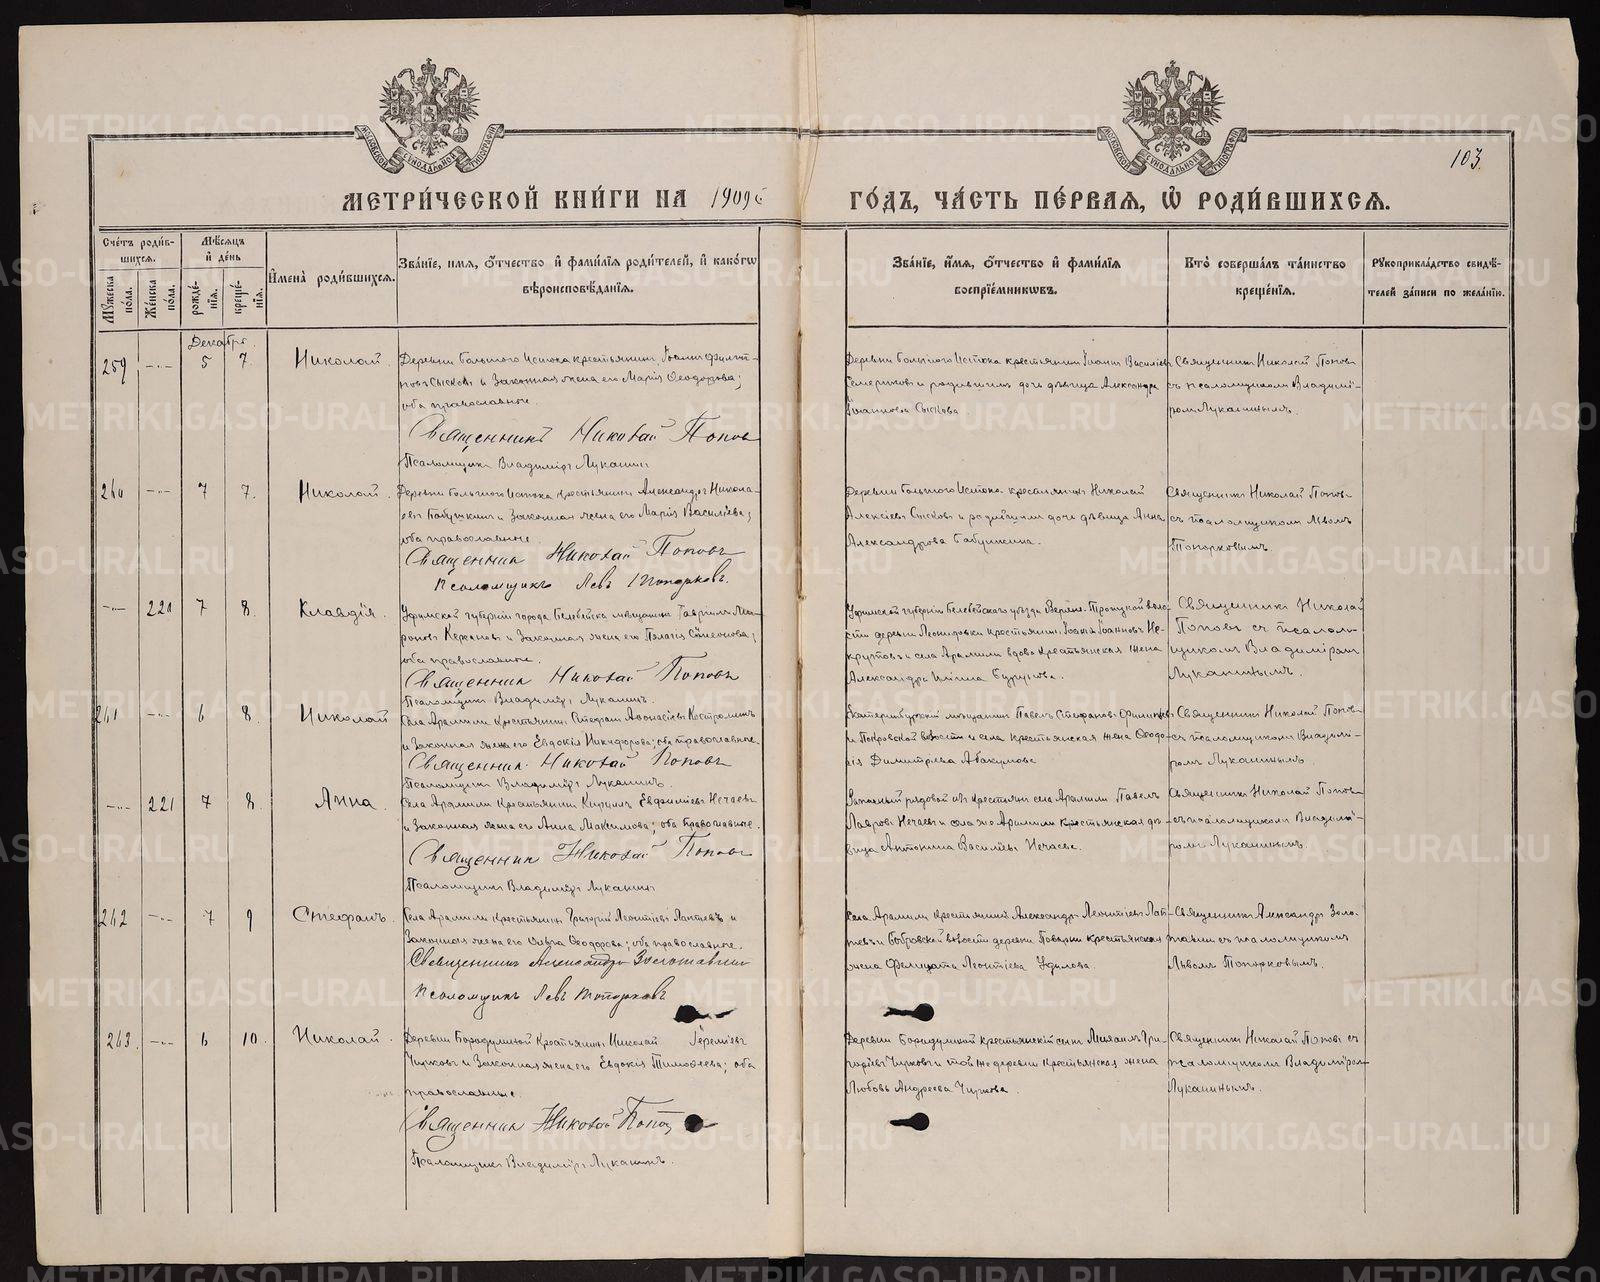 103.
МЕТРИ́ЧЕСКОЙ КНИ́ГИ НА 1909
ГО́ДЪ, ЧА́СТЬ ПЕ́РВАЯ, Ѡ҆ РОДИ́ВШИХСѦ.
Сче́тъ роди́в-
шихсѧ.
Мꙋ́жеска по́ла.
Же́нска по́ла.
Мѣ́сѧцъ и҆ де́нь
рожде́-нїѧ.
креще́-нїѧ.
И҆мена̀ роди́вшихсѧ.
Зва́нїе, и́мѧ, ѻ҆́тчество и҆ фами́лїѧ роди́телей, и҆ како́гѡ
вѣроисповѣ́данїѧ.
Зва́нїе, и́мѧ, ѻ҆́тчество и҆ фами́лїѧ
воспрїе́мникѡвъ.
Кто̀ соверша́лъ та́инство
креще́нїѧ.
Рꙋкоприкла́дство свидѣ́-
телей за́писи по жела́нїю.
Декабрь.
259 5 7. Николай
Деревни Большого Истока крестьянинъ Іоаннъ
Сысковъ и законная жена его Марія Ѳеодорова;
оба православные.
Священникъ Николай Поповъ
Псаломщикъ Владиміръ Луканинъ
Деревни Большого Истока крестьянинъ Іоаннъ Васильевъ
и родившихъ дочь дѣвица Александра
Іоаннова Сыскова.
Священникъ Николай Поповъ
съ псаломщикомъ Владимі-
ромъ Луканинымъ.
260 7 7. Николай.
Деревни Большого Истока крестьянинъ Александръ Никола-
евъ Бабушкинъ и законная жена его Марія Васильева;
оба православные.
Священникъ Николай Поповъ
Псаломщикъ Левъ Топорковъ.
Деревни Большого Истока крестьянинъ Николай
Алексіевъ Сысковъ и родившихъ дочь дѣвица Анна
Александрова Бабушкина.
Священникъ Николай Поповъ
съ псаломщикомъ Львомъ
Топорковымъ
220 7 8. Клавдія.
Уфимской губерніи города Белебея мѣщанинъ Гавріилъ
и законная жена его Пелагія Симеонова;
оба православные.
Священникъ Николай Поповъ
Псаломщикъ Владиміръ Луканинъ.
Уфимской губерніи Белебейского уѣзда
деревни Леонидовки крестьянинъ Іоаннъ Іоанновъ Не-
и села Арамили вдова крестьянская жена
Александра
Священникъ Николай
Поповъ съ псалом-
щикомъ Владиміромъ
Луканинымъ.
261 6 8. Николай
Села Арамили крестьянинъ Стефанъ Аѳонасіевъ Костроминъ
и законная жена его Евдокія Никифорова; оба православные.
Священникъ Николай Поповъ
Псаломщикъ Владиміръ Луканинъ.
Екатеринбургскій мѣщанинъ Павелъ Стефановъ
и Покровской волости и села крестьянская жена Ѳеодо-
Димитріева Абакумова
Священникъ Николай Поповъ
съ псаломщикомъ Владимі-
ромъ Луканинымъ.
221 7 8. Анна.
Села Арамили крестьянинъ Кириллъ Евфиміевъ Нечаевъ
и законная жена его Анна Максимова; оба православные.
Священникъ Николай Поповъ
Псаломщикъ Владиміръ Луканинъ
Запасный рядовой изъ крестьянъ села Арамили Павелъ
Лавровъ Нечаевъ и села же Арамили крестьянская дѣ-
вица Антонина Васильева Нечаева.
Священникъ Николай Поповъ
съ псаломщикомъ Владимі-
ромъ Луканинымъ.
262 7 9 Стефанъ.
Села Арамили крестьянинъ Григорій Леонтіевъ Лаптевъ и
законная жена его Ольга Ѳеодорова; оба православные.
Священникъ Александръ Золотавинъ
Псаломщикъ Левъ Топорковъ
Села Арамили крестьянинъ Александръ Леонтіевъ Лап-
тевъ и Бобровской волости деревни крестьянская
жена Фелицата Леонтіева
Священникъ Александръ Золо-
тавинъ съ псаломщикомъ
Львомъ Топорковымъ.
263. 6 10. Николай.
Деревни Бородулиной крестьянинъ Николай Іереміевъ
Чирковъ и законная жена его Евдокія Тимоѳеева; оба
православные.
Священникъ Николай Попов
Псаломщикъ Владиміръ Луканинъ.
Деревни Бородулиной крестьянскій сынъ Михаилъ Гри-
горіевъ Чирковъ и той же деревни крестьянская жена
Любовь Андреева Чиркова.
Священникъ Николай Поповъ съ
псаломщикомъ Владиміромъ
Луканинымъ.
METRIKI.GASO-URAL.RU